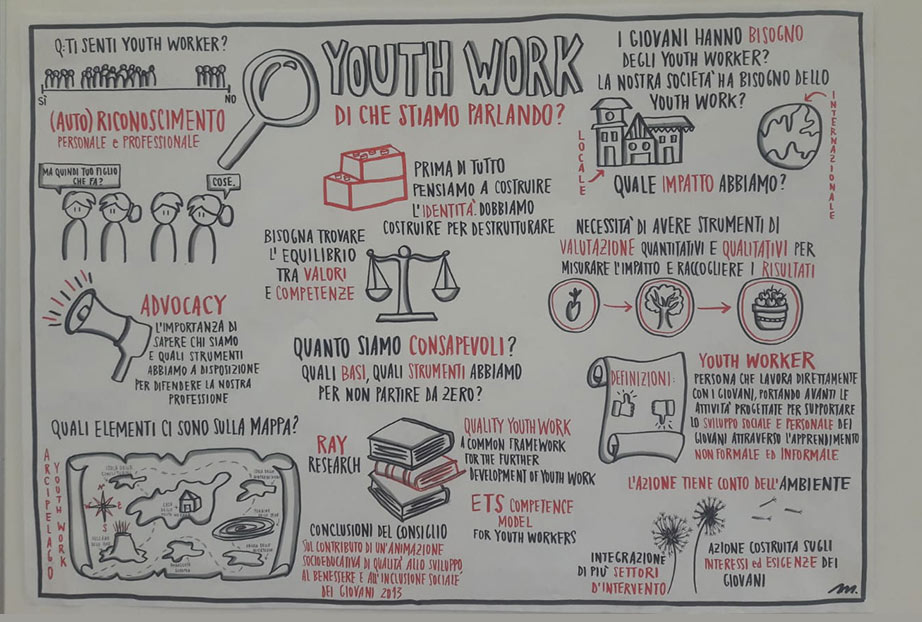 Q: TI SENTI YOUTH WORKER?
SÌ
NO
(AUTO) RICONOSCIMENTO
PERSONALE e PROFESSIONALE
MA QUINDI TUO FIGLIO
CHE FA?
COSE.
YOUTH WORK
DI CHE STIAMO PARLANDO?
I GIOVANI HANNO BISOGNO
DEGLI YOUTH WORKER?
LA NOSTRA SOCIETÀ HA BISOGNO DELLO
YOUTH WORK?
LOCALE
INTERNAZIONALE
QUALE IMPATTO ABBIAMO?
PRIMA DI TUTTO
PENSIAMO A COSTRUIRE
L'IDENTITÀ. DOBBIAMO
COSTRUIRE PER DESTRUTTURARE
BISOGNA TROVARE
L'EQUILIBRIO
TRA VALORI
E COMPETENZE
NECESSITÀ DI AVERE STRUMENTI DI
VALUTAZIONE QUANTITATIVI E QUALITATIVI PER
MISURARE L'IMPATTO E RACCOGLIERE I RISULTATI
ADVOCACY
L'IMPORTANZA DI
SAPERE CHI SIAMO
E QUALI STRUMENTI
ABBIAMO A DISPOSIZIONE
PER DIFENDERE LA NOSTRA
PROFESSIONE
QUANTO SIAMO CONSAPEVOLI?
QUALI BASI, QUALI STRUMENTI ABBIAMO
PER NON PARTIRE DA ZERO?
DEFINIZIONI:
YOUTH WORKER
PERSONA CHE LAVORA DIRETTAMENTE
CON I GIOVANI, PORTANDO AVANTI LE
ATTIVITÀ PROGETTATE PER SUPPORTARE
LO SVILUPPO SOCIALE E PERSONALE DEI
GIOVANI ATTRAVERSO L'APPRENDIMENTO
NON FORMALE ED INFORMALE
QUALI ELEMENTI CI SONO SULLA MAPPA?
ARCIPELAGO
YOUTH WORK
RAY
RESEARCH
QUALITY YOUTH WORK
A COMMON FRAMEWORK
FOR THE FURTHER
DEVELOPMENT OF YOUTH WORK
ETS COMPETENCE
MODEL
FOR YOUTH WORKERS
CONCLUSIONI DEL CONSIGLIO
SUL CONTRIBUTO DI UN'ANIMAZIONE
SOCIOEDUCATIVA DI QUALITÀ ALLO SVILUPPO,
AL BENESSERE E ALL'INCLUSIONE SOCIALE
DEI GIOVANI 2013
L'AZIONE TIENE CONTO DELL'AMBIENTE
INTEGRAZIONE
DI PIÙ SETTORI
D'INTERVENTO
AZIONE COSTRUITA SUGLI
INTERESSI ED ESIGENZE DEI
GIOVANI